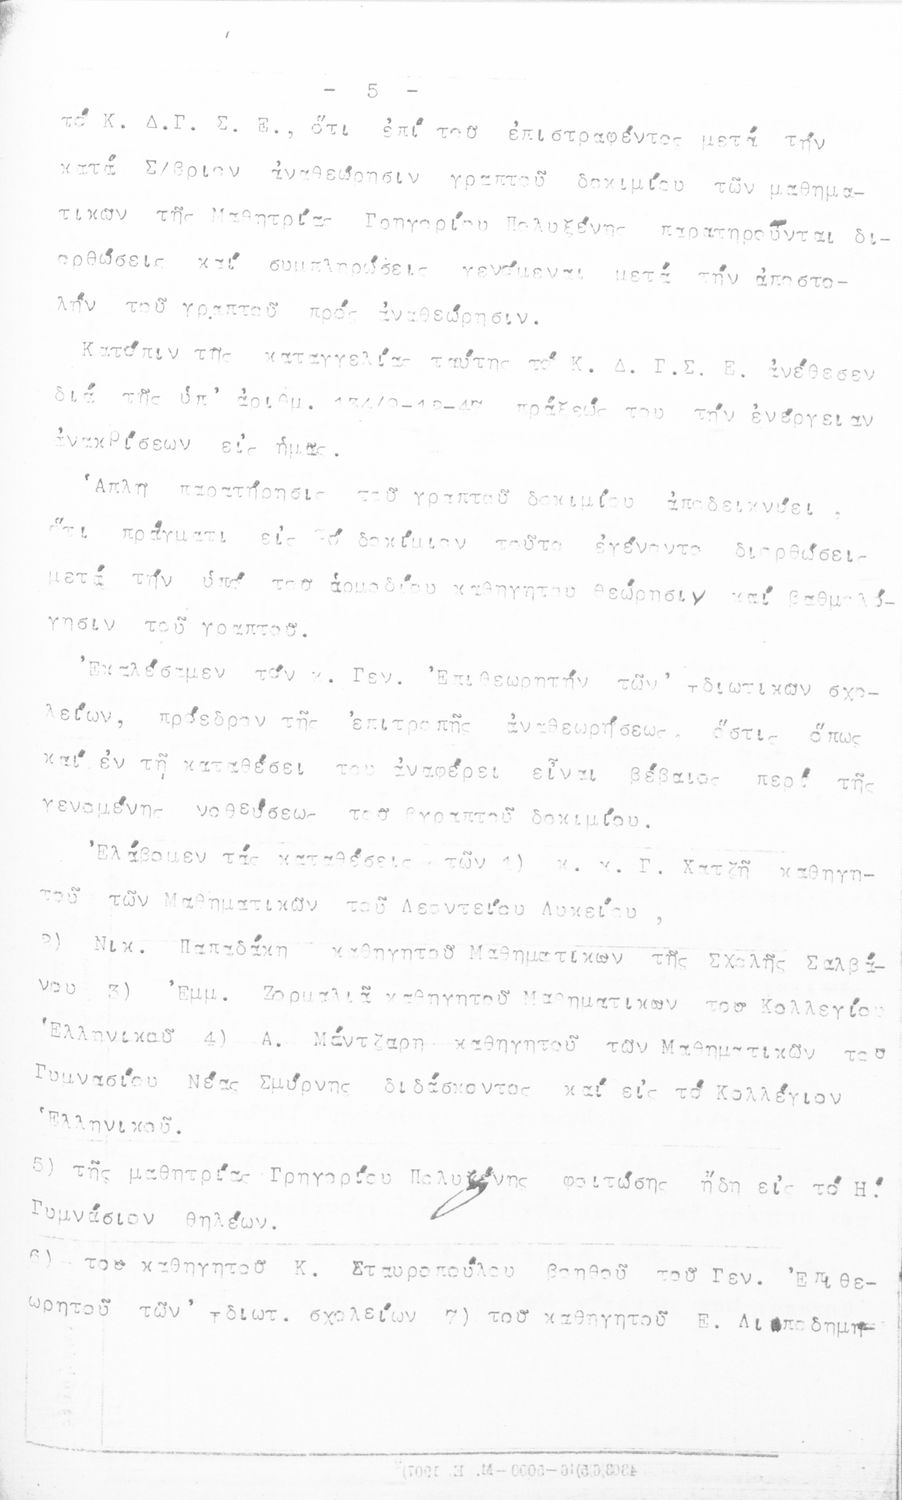 - 5 -
τό Κ. Δ.Γ. Σ. Ε., ὅτι ἐπί τοῦ ἐπιστραφέντος μετά τήν
κατά Σ/βριον ἀναθεώρησιν γραπτοῦ δοκιμίου τῶν μαθημα-
τικῶν τῆς Μαθητρίας Γρηγορίου Πολυξένης παρατηροῦνται δι-
ορθώσεις καί συμπληρώσεις γενόμεναι μετά τήν ἀποστο-
λήν τοῦ γραπτοῦ πρός ἀναθεώρησιν.
Κατόπιν τῆς καταγγελίας ταύτης τό Κ. Δ. Γ.Σ. Ε. ἀνέθεσεν
διά τῆς ὑπ' ἀριθμ. πράξεώς του τήν ἐνέργειαν
ἀνακρίσεων εἰς ἡμας.
Ἁπλῆ παρατήρησις τοῦ γραπτοῦ δοκιμίου ἀποδεικνύει ,
ὅτι πράγματι εἰς τό δοκίμιον τοῦτο ἐγένοντο διορθώσεις
μετά τήν ὑπό τοῦ ἁρμοδίου καθηγητου θεώρησιν καί βαθμολό-
γησιν τοῦ γραπτοῦ.
Ἐκαλέσαμεν τόν κ. Γεν. Ἐπιθεωρητήν τῶν Ἰδιωτικῶν σχο-
λείων, πρόεδρον τῆς ἐπιτροπῆς ἀναθεωρήσεως, ὅστις ὅπως
καί ἐν τῇ καταθέσει του ἀναφέρει εἶναι βέβαιος περί τῆς
γενομένης νοθεύσεως τοῦ γραπτοῦ δοκιμίου.
Ἐλάβομεν τάς καταθέσεις τῶν 1) κ. κ. Γ. Χατζῆ καθηγη-
τοῦ τῶν Μαθηματικῶν τοῦ Λεοντείου Λυκείου ,
2) Νικ. Παπαδάκη καθηγητοῦ Μαθηματικῶν τῆς Σχολῆς Σαλβά-
νου 3) Ἐμμ. Ζορμαλιᾶ καθηγητοῦ Μαθηματικων τοῦ Κολλεγίου
Ἑλληνικοῦ 4) Α. Μάντζαρη καθηγητοῦ τῶν Μαθηματικῶν τοῦ
Γυμνασίου Νέας Σμύρνης διδάσκοντος καί εἰς τό Κολλέγιον
Ἑλληνικοῦ.
5) τῆς μαθητρίας Γρηγορίου Πολυξένης φοιτώσης ἤδη εἰς τό Η΄
Γυμνάσιον θηλέων.
6) τοῦ καθηγητοῦ Κ. Σταυροπούλου βοηθοῦ τοῦ Γεν. Ἐπιθε-
ωρητοῦ τῶν Ἰδιωτ. σχολείων 7) τοῦ καθηγητοῦ Ε.